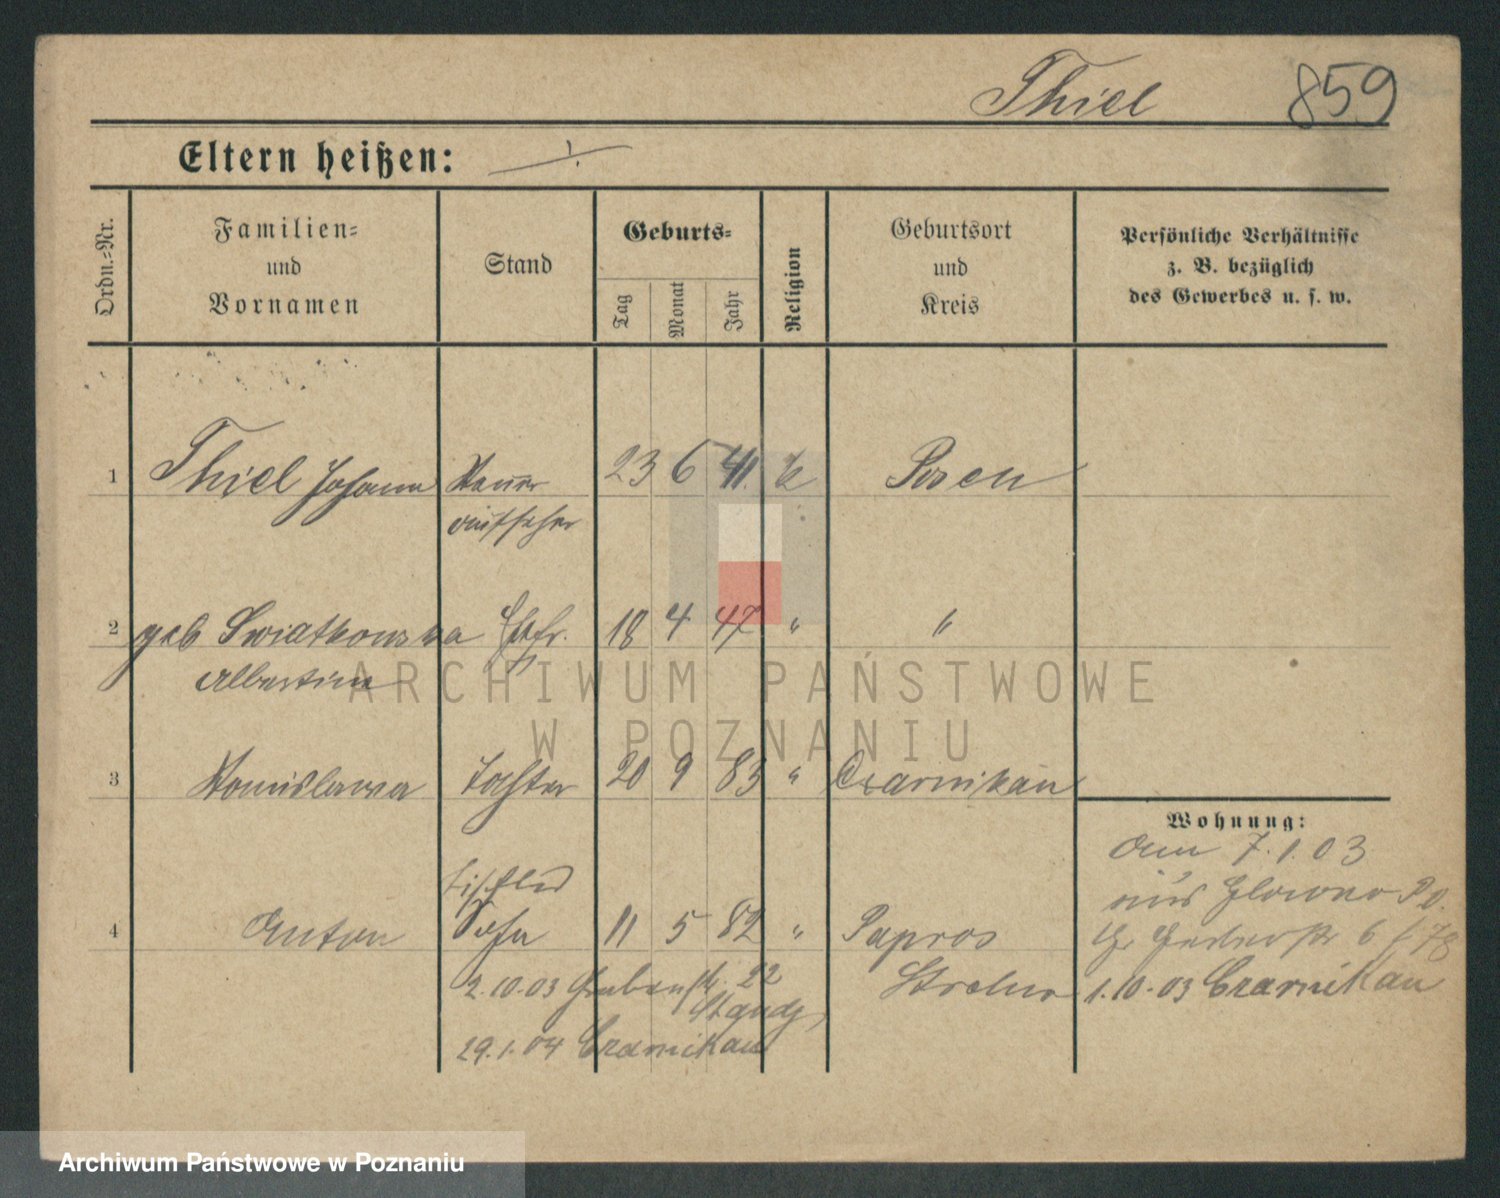 Thiel 859
Eltern heißen: ./.
Ordn.-Nr.
Familien-
und
Vornamen
Stand
Geburts-
Tag
Monat
Jahr
Religion
Geburtsort
und
Kreis
Persönliche Verhältnisse
z. B. bezüglich
des Gewerbes u. s. w.
1 Thiel Johann 23 6 41. k Posen
2 geb Swiatkowska Ehfr. 18 4 47 " "
Albertine
ARCHIWUM PAŃSTWOWE
W POZNANIU
3 Stanislawa Tochter 20 9 83 " Czarnikau
Wohnung:
Am 7.1.03
aus Glowno Po.
Tischler
4 Anton Sohn 11 5 82 " Papros
6 / 78
2.10.03 Grabenstr. 22
Strelno
1.10.03 Czarnikau
29.1.04 Czarnikau
Archiwum Państwowe w Poznaniu